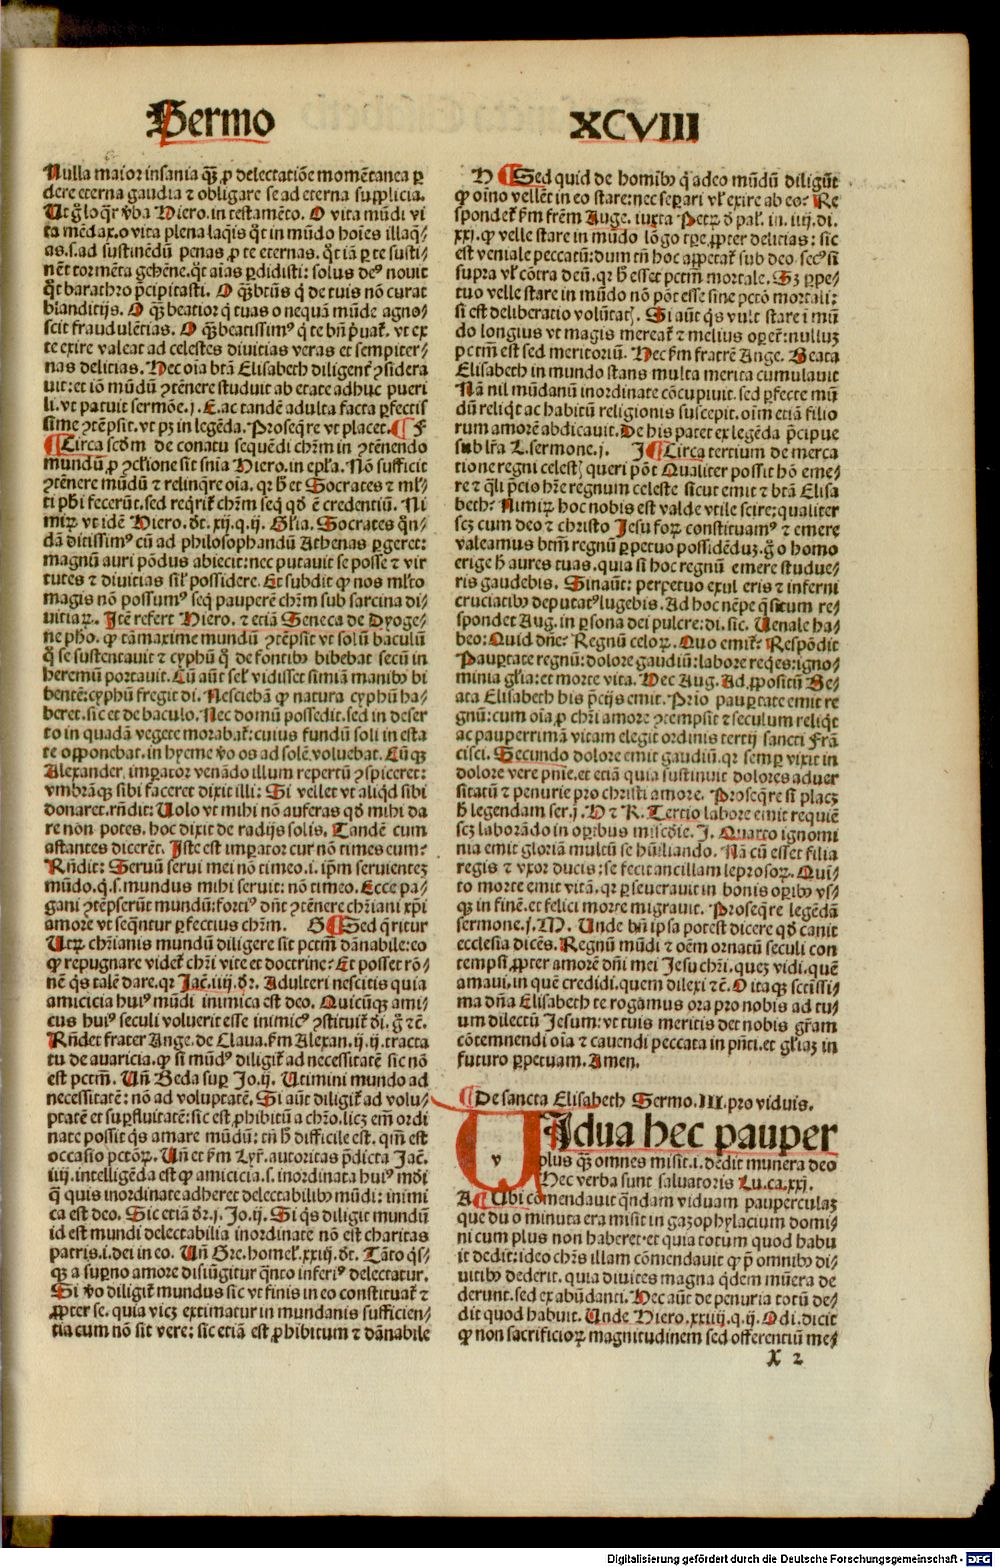 Sermo XCVIII
Nulla maior insania qȝ ꝓ delectatiõe momẽtanea ꝑ
dere eterna gaudia ⁊ obligare se ad eterna supplicia.
Ut g̃ loqr v̾ba Hiero. in testamẽto. O vita mũdi vi
ta mẽdax. o vita plena laq̃is q̃t in mũdo hoĩes illaq̃/
as. s. ad sustinẽdũ penas ꝓ te eternas. q̃t iã ꝑ te susti/
nẽt tormẽta gehẽne. q̃t aĩas ꝑdidisti: solus deꝰ nouit
q̃t barathro p̃cipitasti. O qȝbtũs q̃ de tuis nõ curat
blanditijs. O qȝ beatior q̃ tuas o nequã mũde agno/
scit fraudulẽtias. O qȝ beatissimꝰ q̃ te bñ p̃uat̾. vt ex
te exire valeat ad celestes diuitias veras et sempiter/
nas delitias. Hec oĩa btã Elisabeth diligent̾ ꝯsidera
uit: et iõ mũdũ ꝯtẽnere studuit ab etate adhuc pueri
li. vt patuit sermõe. j. E. ac tandẽ adulta facta ꝑfectis
sime ꝯtẽpsit. vt pȝ in legẽda. Proseq̃re vt placet. F
Circa scd̾m de conatu sequẽdi chr̃m in ꝯtẽnendo
mundũ ꝓ ꝯclione sit sñia Hiero. in epl̃a. Nõ sufficit
ꝯtẽnere mũdũ ⁊ relinq̃re oĩa. qr h̾ et Socrates ⁊ ml̾/
ti ph̾i fecerũt. sed req̃rit̾ chr̃m seq̃ qd̾ ẽ credentiũ. Ni
mirꝝ vt idẽ Hiero. d̾t. xij. q. ij. Gl̾ia. Socrates q̃n/
dã ditissimꝰ cũ ad philosophandũ Athenas ꝑgeret:
magnũ auri põdus abiecit: nec putauit se posse ⁊ vir
tutes ⁊ diuitias sil̾ possidere. Et subdit ꝙ nos ml̾to
magis nõ possumꝰ seq̃ pauperẽ chr̃m sub sarcina di/
uitiaꝝ. Itẽ refert Hiero. ⁊ etiã Seneca de Dyoge/
ne ph̾o. ꝙ tã maxime mundũ ꝯtẽpsit vt solũ baculũ
q̃ se sustentauit ⁊ cyphũ q̃ de fontibꝰ bibebat secũ in
heremũ portauit. Cũ aũt sel̾ vidisset simiã manibꝰ bi
bentẽ: cyphũ fregit di. Nesciebã ꝙ natura cyphũ ha/
beret. sic et de baculo. Nec domũ possedit. sed in deser
to in quadã vegete morabat̾: cuius fundũ soli in esta
te opponebat. in hyeme v̾o os ad solẽ voluebat. Cũqȝ
Alexander imꝑator venãdo illum repertũ ꝯspiceret:
vmbrãqȝ sibi faceret dixit illi: Si vellet vt aliqd sibi
donaret. rñdit: Uolo vt mihi nõ auferas qd̾ mihi da
re non potes. hoc dixit de radijs solis. Tandẽ cum
astantes dicerẽt. Iste est imꝑator cur nõ times eum?
Rñdit: Seruũ serui mei nõ timeo. i. ip̃m seruientez
mũdo. q̃. s. mundus mihi seruit: nõ timeo. Ecce pa/
gani ꝯtẽpserũt mundũ: fortiꝰ dñt ꝯtẽnere chr̃iani xp̃i
amore vt seq̃ntur ꝑfectius chr̃m. G Sed q̃ritur
Utꝝ chr̃ianis mundũ diligere sit pctm̃ dãnabile: eo
ꝙ repugnare videt̾ chr̃i vite et doctrine? Et posset rõ/
nẽ q̃s talẽ dare. qr Jac̃. iiij. d̾r. Adulteri nescitis quia
amicicia huiꝰ mũdi inimica est deo. Quicũqȝ ami/
cus huiꝰ seculi voluerit esse inimicꝰ ꝯstituit̾ d̾i. g̃ ⁊c̃.
Rñdet frater Ange. de Claua. fm Alexan. ij. ij. tracta
tu de auaricia. ꝙ si mũdꝰ diligit̾ ad necessitatẽ sic nõ
est pctm̃. Uñ Beda suꝑ Jo. ij. Utimini mundo ad
necessitatẽ: nõ ad voluptatẽ. Si aũt diligit̾ ad volu/
ptatẽ et suꝑfluitatẽ: sic est ꝓhibitũ a chr̃o. licȝ em̃ ordi
nate possit q̃s amare mũdũ: tñ h̾ difficile est. qm̃ est
occasio pctõꝝ. Uñ et fm Lyr̃. autoritas p̃dicta Jac̃.
iiij. intelligẽda est ꝙ amicicia. s. inordinata huiꝰ mũdi
q̃ quis inordinate adheret delectabilibꝰ mũdi: inimi
ca est deo. Sic etiã d̾r. j. Jo. ij. Si q̃s diligit mundũ
id est mundi delectabilia inordinate nõ est charitas
patris. i. dei in eo. Uñ Gre. homel̾. xxiij. d̾t. Tãto q̃s/
qȝ a suꝑno amore disiũgitur q̃nto inferiꝰ delectatur.
Si v̾o diligit̾ mundus sic vt finis in eo constituat̾ ⁊
ꝓpter se. quia vicȝ extimatur in mundanis sufficien/
tia cum nõ sit vere: sic etiã est ꝓhibitum ⁊ dãnabile
H Sed quid de homĩbꝰ q̃ adeo mũdũ diligũt
ꝙ oĩno vellẽt in eo stare: nec seꝑari vl̾ exire ab eo? Re
spondet̾ fm fr̃em Ange. iuxta Petꝝ d̾ pal̾. in. iiij. di.
xxj. ꝙ velle stare in mũdo lõgo tꝑe ꝓpter delitias: sic
est veniale peccatũ: dum tñ hoc appetat̾ sub deo. secꝰ si
supra vl̾ cõtra deũ. qr h̾ esset pctm̃ mortale. Sȝ ꝑpe/
tuo velle stare in mũdo nõ põt esse sine pctõ mortali:
si est deliberatio volũtat̾. Si aũt q̃s vult stare ĩ mũ
do longius vt magis mereat̾ ⁊ melius oꝑet̾: nulluȝ
pctm̃ est sed meritoriũ. Hec fm fratrẽ Ange. Beata
Elisabeth in mundo stans multa merita cumulauit
Nã nil mũdanũ inordinate cõcupiuit. sed ꝑfecte mũ
dũ reliq̃t ac habitũ religionis suscepit. oĩm etiã filio
rum amorẽ abdicauit. De his patet ex legẽda p̃cipue
sub lr̃a L. sermone. j. I Circa tertium de merca
tione regni celest̾ queri põt Qualiter possit hõ eme/
re ⁊ q̃li p̃cis hr̃e regnum celeste sicut emit ⁊ btã Elisa
beth? Nimirꝝ hoc nobis est valde vtile scire: qualiter
scȝ cum deo ⁊ christo Jesu foꝝ constituamꝰ ⁊ emere
valeamus btm̃ regnũ ꝑpetuo possidẽduȝ. g̃ o homo
erige h̾ aures tuas. quia si hoc regnũ emere studue/
ris gaudebis. Sinaũt: perpetuo exul eris ⁊ inferni
cruciatibꝰ deputatꝰ lugebis. Ad hoc nẽpe q̃situm re/
spondet Aug. in ꝑsona dei pulcre: di. sic. Uenale ha/
beo: Quid dñe? Regnũ celoꝝ. Quo emit̾? Respõdit
Pauꝑtate regnũ: dolore gaudiũ: labore req̃es: igno/
minia gl̃ia: et morte vita. Hec Aug. Ad ꝓpositũ Be/
ata Elisabeth his p̃cijs emit. Prio pauꝑtate emit re
gnũ: cum oĩa ꝓ chr̃i amore ꝯtempsit ⁊ seculum reliq̃t
ac pauperrimã vitam elegit ordinis tertij sancti Frã
cisci. Secundo dolore emit gaudiũ. qr semꝑ vixit in
dolore vere pñie. et etiã quia sustinuit dolores aduer
sitatũ ⁊ penurie pro christi amore. Proseq̃re si placȝ
h̾ legendam ser. j. H ⁊ K. Tertio labore emit requiẽ
scȝ laborãdo in oꝑibus miscd̾ie. J. Quarto ignomi
nia emit gloriã multũ se hũiliando. Nã cũ esset filia
regis ⁊ vxor ducis: se fecit ancillam leprosoꝝ. Qui/
to morte emit vitã. qr ꝑseuerauit in bonis oꝑibꝰ vs/
qȝ in finẽ. et felici morte migrauit. Proseq̃re legẽdã
sermone. j. M. Unde bñ ipsa potest dicere qd̾ canit
ecclesia dicẽs. Regnũ mũdi ⁊ oẽm ornatũ seculi con
tempsi ꝓpter amorẽ dñi mei Jesu chr̃i. quez vidi. quẽ
amaui. in quẽ credidi. quem dilexi ⁊c̃. O itaqȝ sctissi/
ma dña Elisabeth te rogamus ora pro nobis ad tu/
um dilectũ Jesum: vt tuis meritis det nobis gr̃am
cõtemnendi oĩa ⁊ cauendi peccata in pñti. et gl̃iaȝ in
futuro ꝑpetuam. Amen.
De sancta Elisabeth Sermo. III. pro viduis.
Uidua hec pauper
plus qȝ omnes misit. i. dẽdit munera deo
Hec verba sunt saluatoris Lu. ca. xxj.
A Ubi comendauit q̃ndam viduam pauperculaȝ
que duo minuta era misit in gazophylacium domi/
ni cum plus non haberet. et quia totum quod habu
it dedit: ideo chr̃s illam cõmendauit ꝙ p̃ omnibꝰ di/
uitibꝰ dederit. quia diuites magna q̃dem mũera de
derunt. sed ex abũdanti. Hec aũt de penuria totũ de/
dit quod habuit. Unde Hiero. xxiiij. q. ij. Odi. dicit
ꝙ non sacrificioꝝ magnitudinem sed offerentiũ me/
X 2
Digitalisierung gefördert durch die Deutsche Forschungsgemeinschaft - DFG